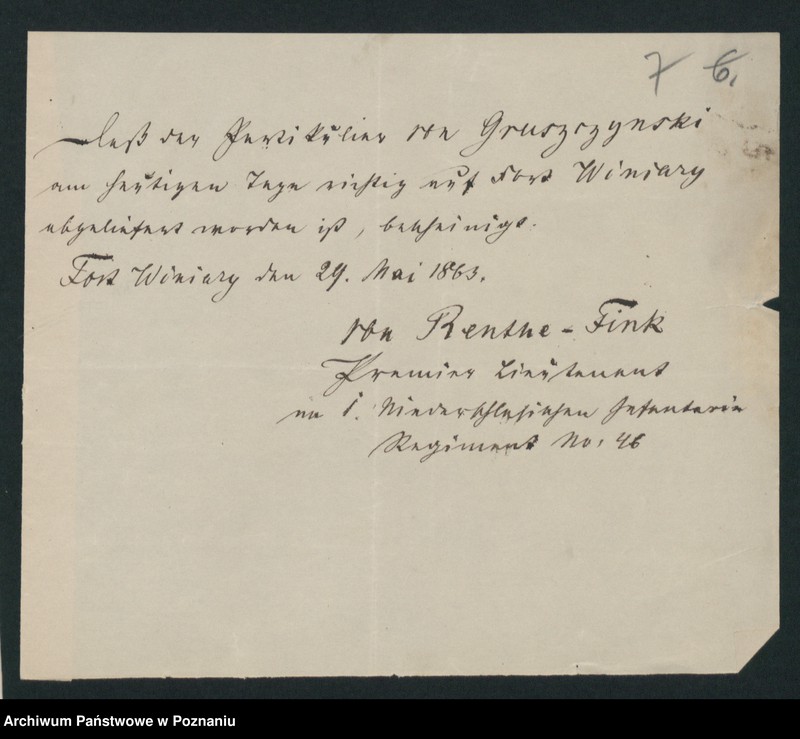 7 6.
Daß der Partikulier von Gruszczynski
am heutigen Tage richtig auf Fort Winiary
abgeliefert worden ist, bescheinigt.
Fort Winiary den 29. Mai 1863.
von Renthe-Fink
Premier Lieutenant
im 1. Niederschlesischen Infanterie
Regiment No: 46
Archiwum Państwowe w Poznaniu